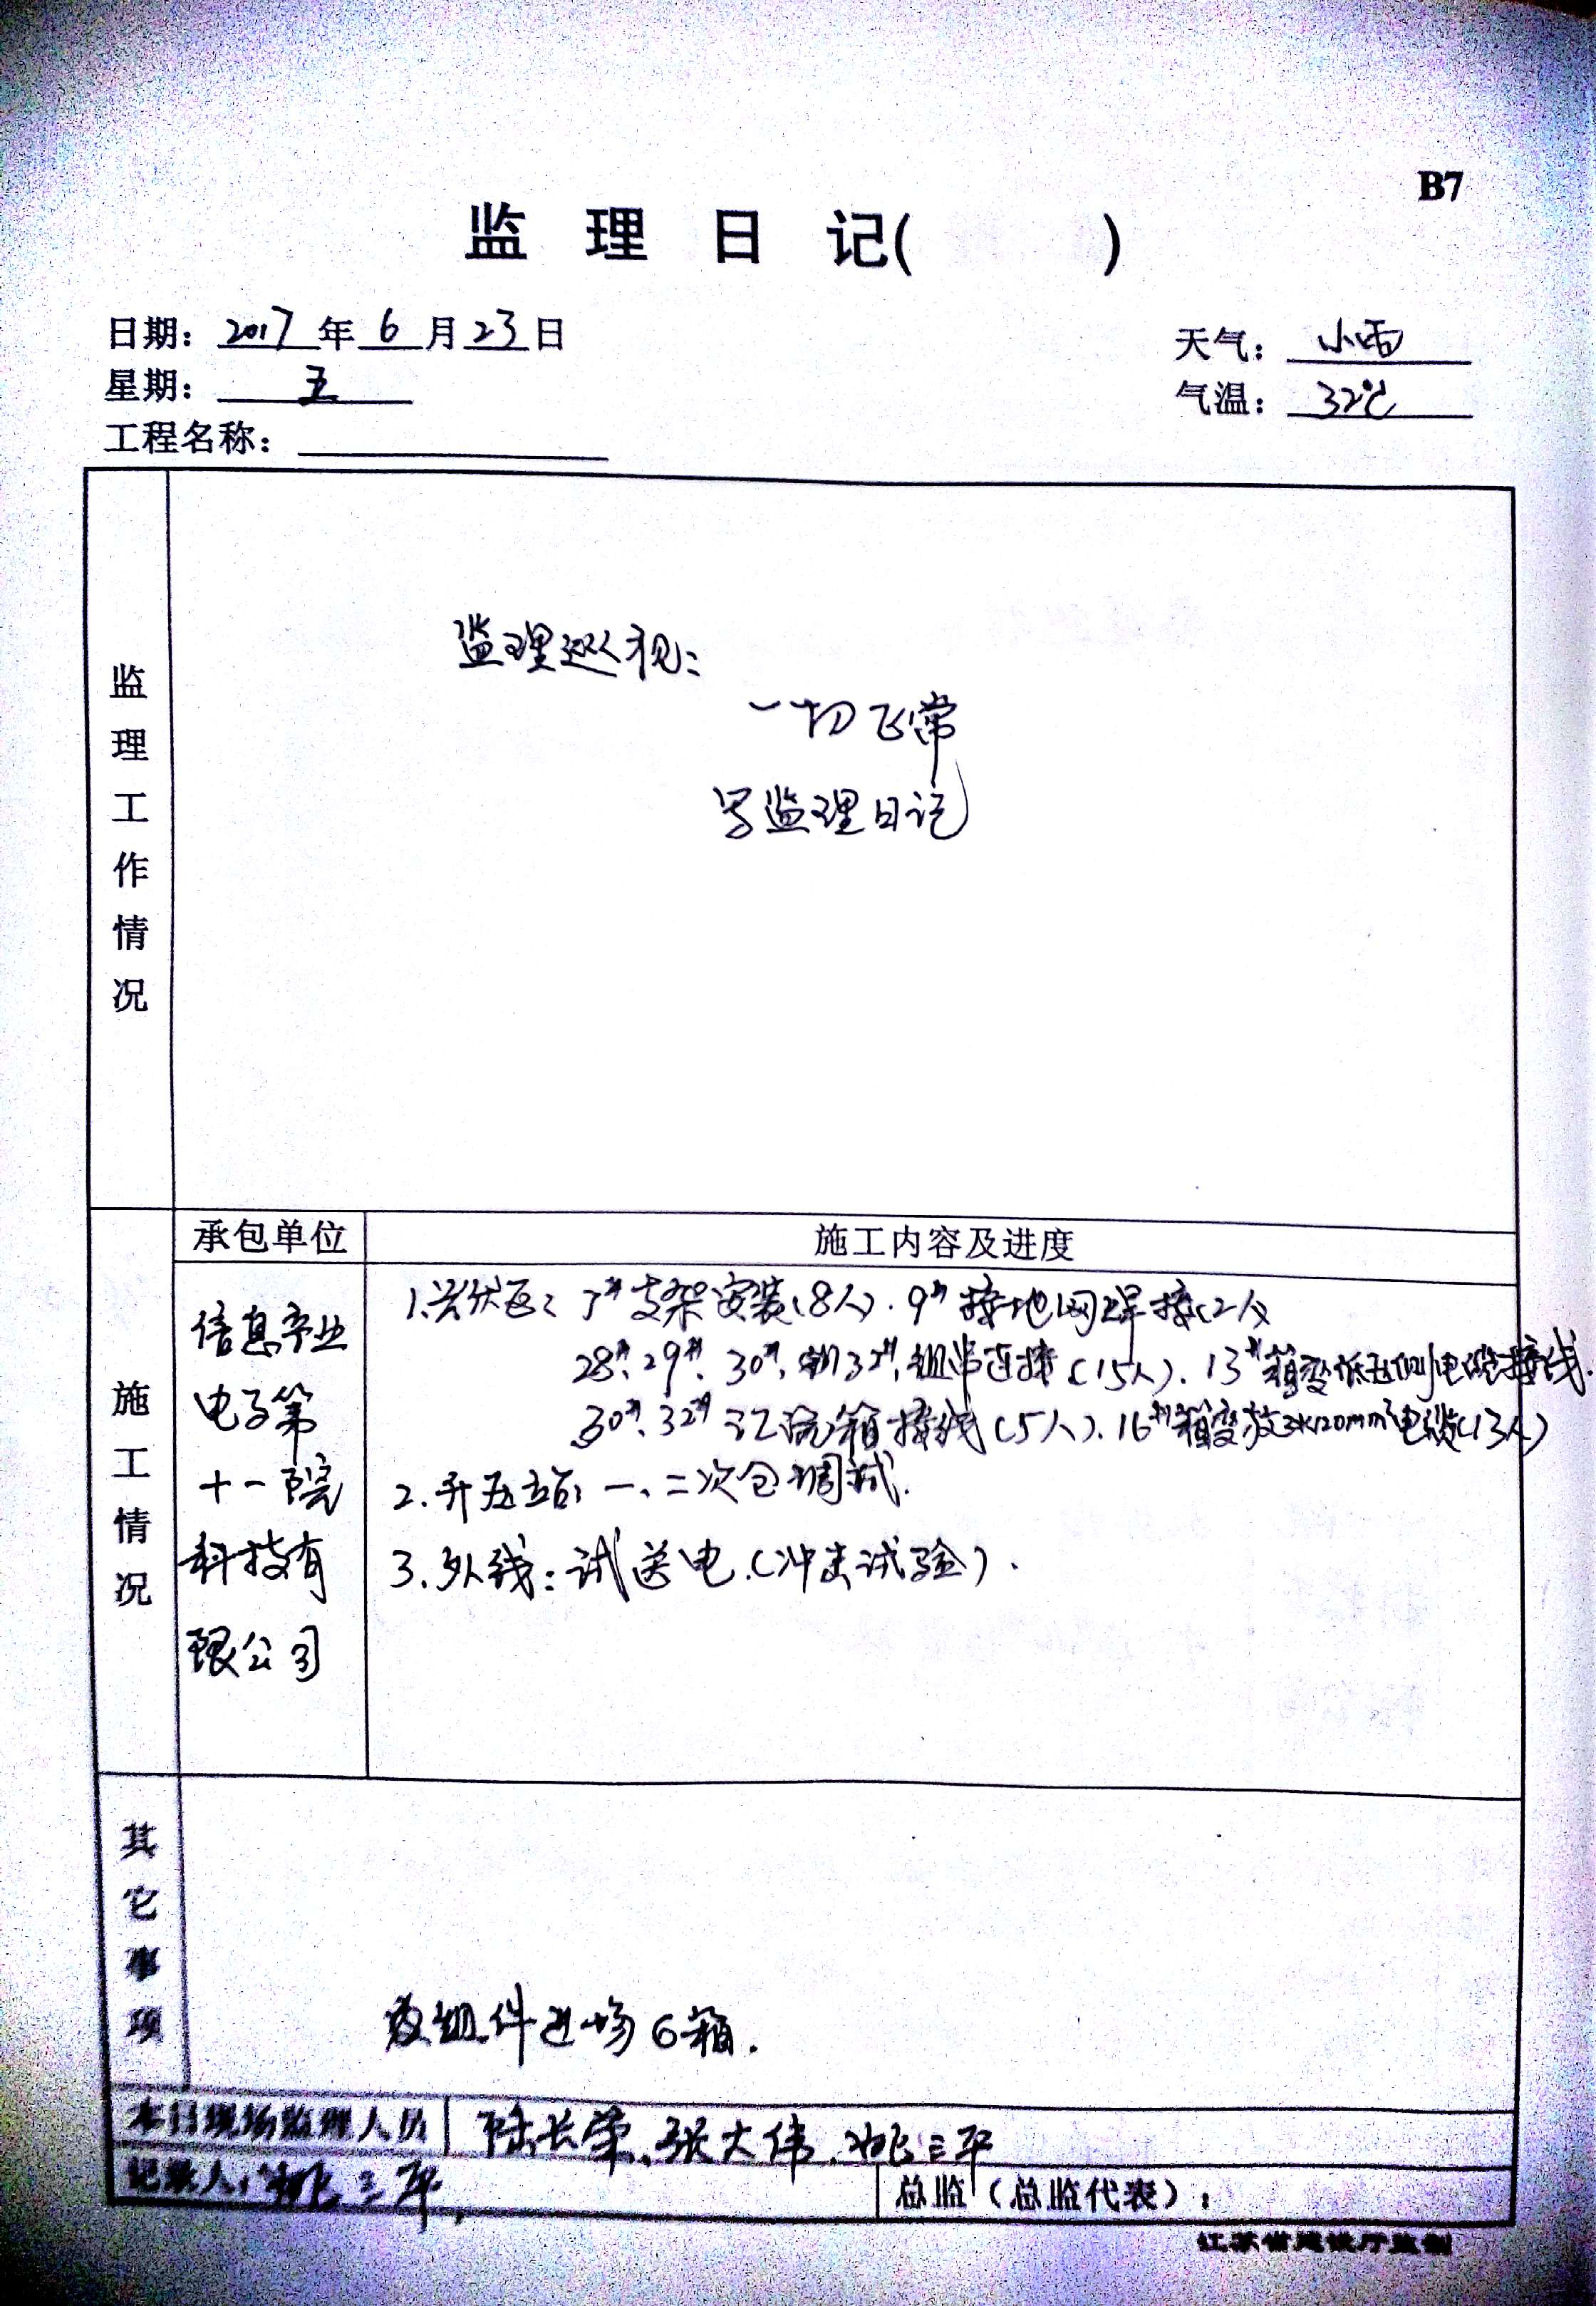 B7
监理日记( )
日期：2017年6月23日
天气：小雨
星期：五
气温：32℃
工程名称：
监理工作情况
监理巡视：
一切正常
写监理日记
施工情况
承包单位
施工内容及进度
信息产业
电子第
十一院
科技有
限公司
1.光伏区：7#支架安装(8人). 9#接地网焊接(2人)
28#、29#、30#、32#组串连接(15人). 13#箱变低压侧电缆接线.
30#、32#汇流箱接线(5人). 16#箱变放3×120mm²电缆(13人)
2.升压站：一、二次仓调试.
3.外线：试送电.(冲击试验).
其它事项
组件进场6箱.
本日现场监理人员
陆长荣、张大伟、姚三平
记录人：姚三平
总监（总监代表）：
江苏省建设厅监制